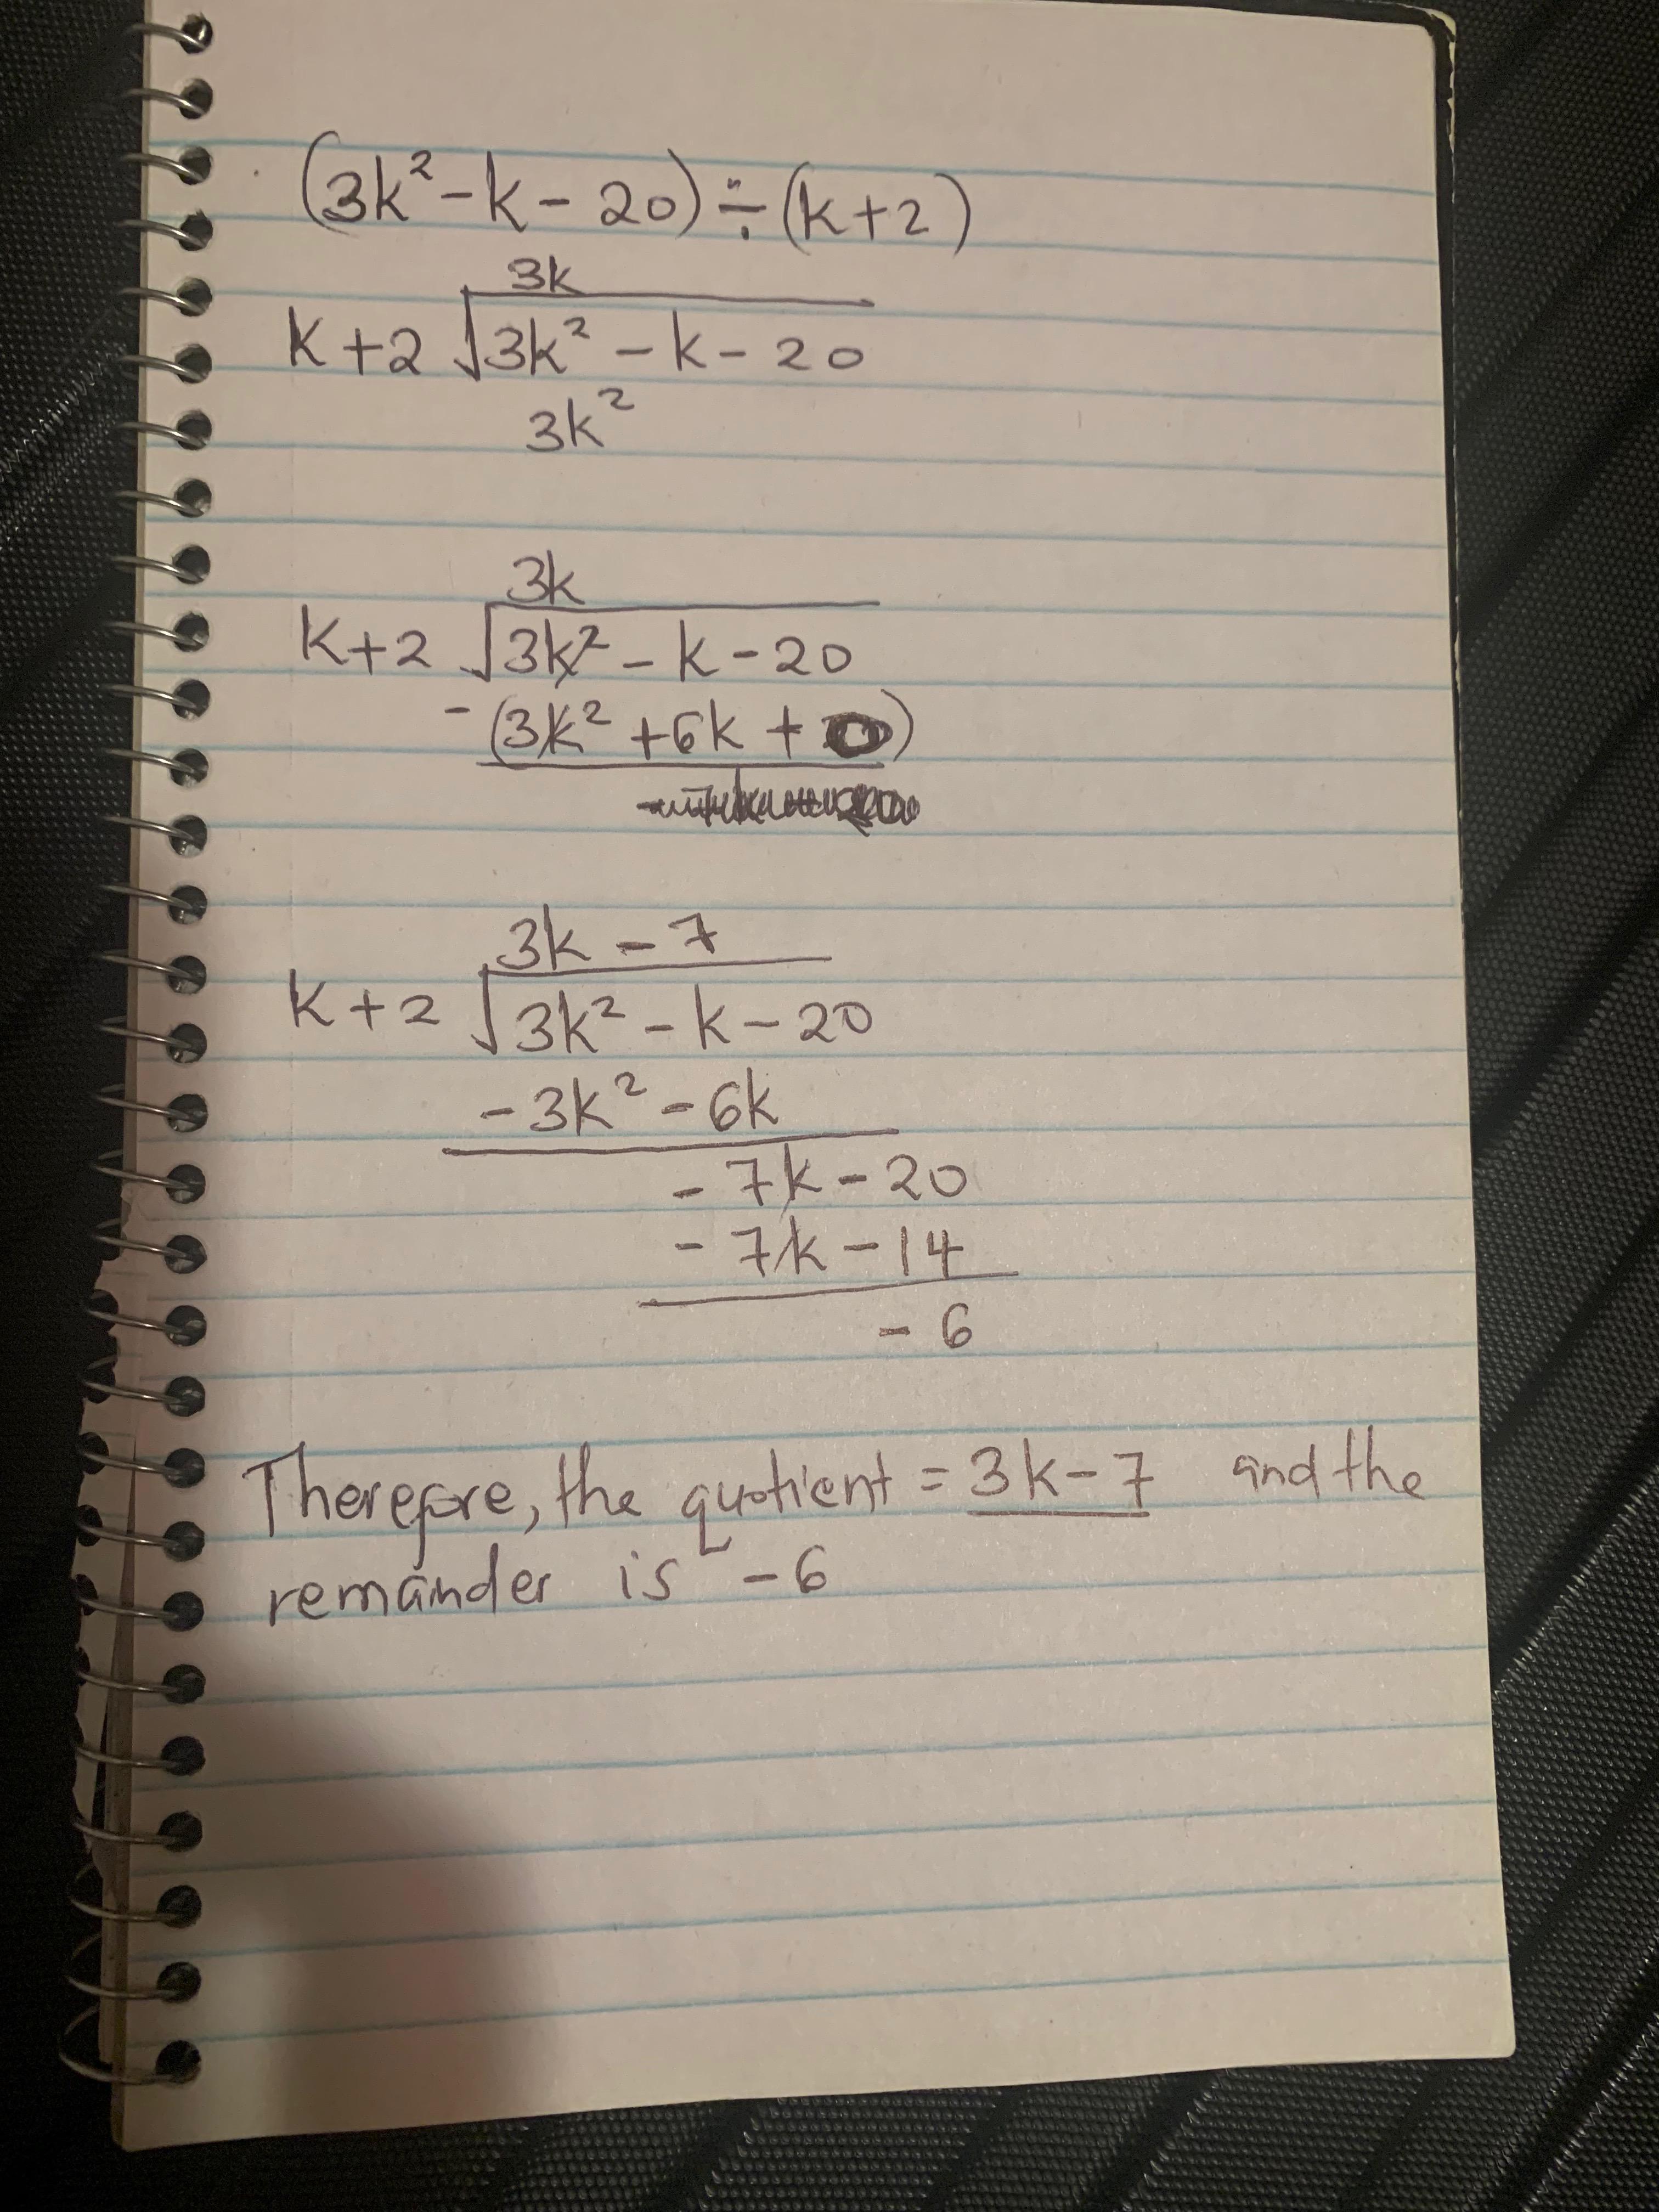 (3k² - k - 20) ÷ (k + 2)
3k
k + 2 √3k² - k - 20
3k²
3k
k + 2 √3k² - k - 20
- (3k² + 6k + 0)
3k - 7
k + 2 √3k² - k - 20
- 3k² - 6k
- 7k - 20
- 7k - 14
- 6
Therefore, the quotient = 3k - 7 and the
remainder is - 6